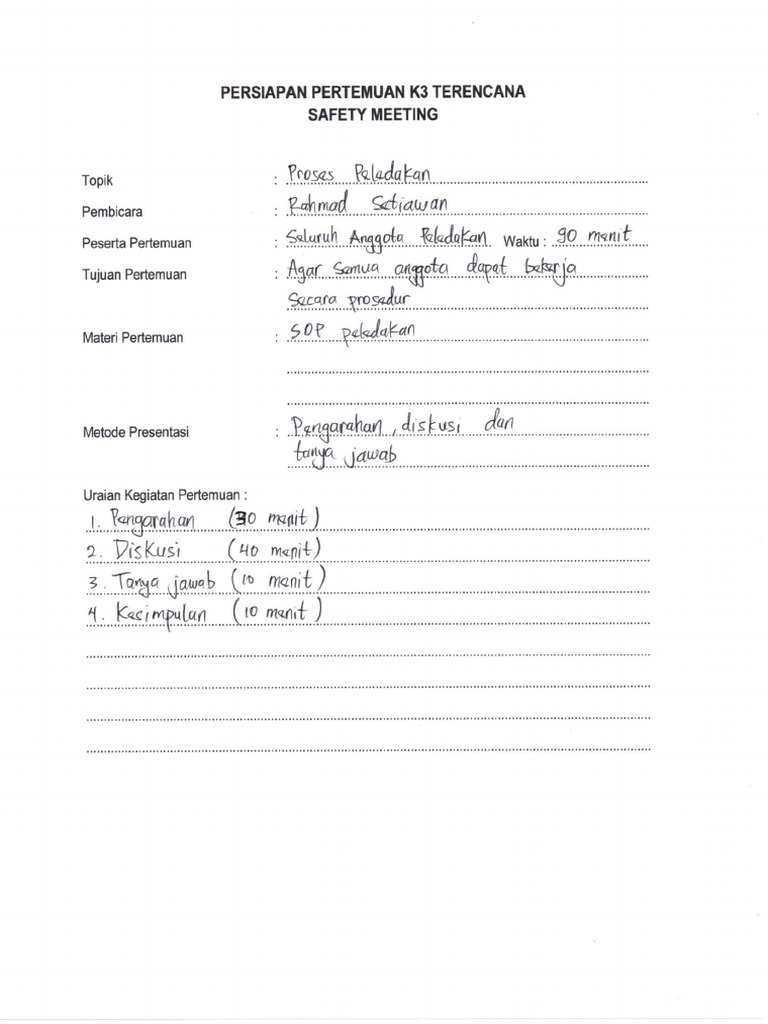 PERSIAPAN PERTEMUAN K3 TERENCANA
SAFETY MEETING
Topik : Proses Peledakan
Pembicara : Rahmad Setiawan
Peserta Pertemuan : Seluruh Anggota Peledakan Waktu : 90 menit
Tujuan Pertemuan : Agar semua anggota dapat bekerja
secara prosedur
Materi Pertemuan : SOP peledakan
Metode Presentasi : Pengarahan, diskusi dan
tanya jawab
Uraian Kegiatan Pertemuan :
1. Pengarahan (30 menit)
2. Diskusi (40 menit)
3. Tanya jawab (10 menit)
4. Kesimpulan (10 menit)